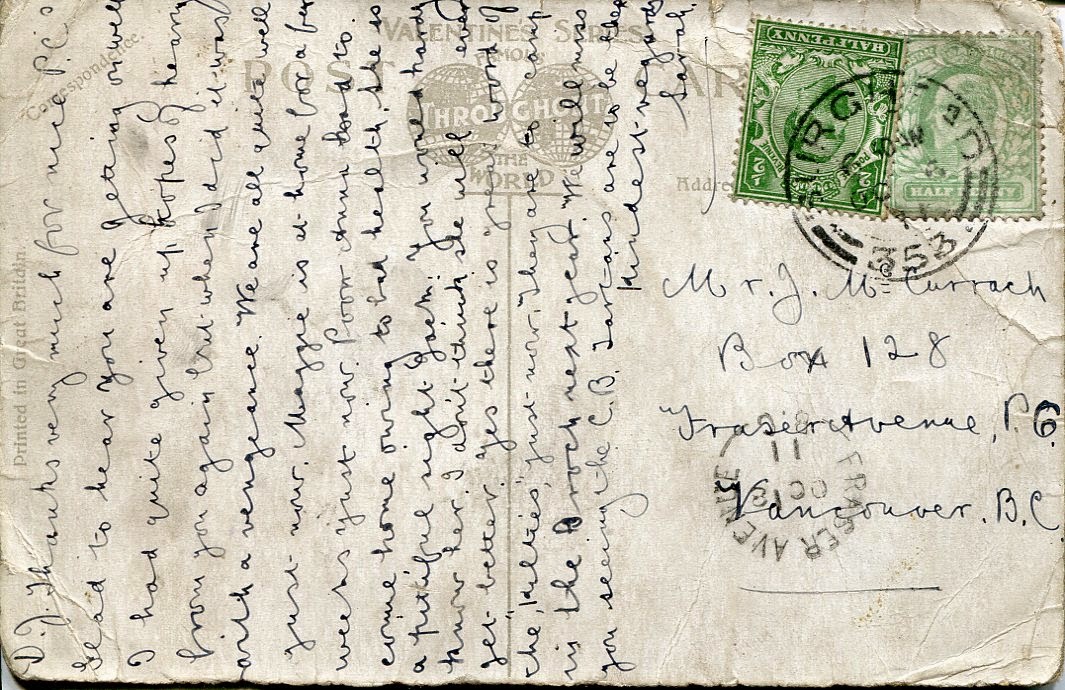 D.J. Thanks very much for nice P.C.'s
Glad to hear you are getting on well
I had quite given up hopes of hearing
from you again but when I did it was
with a vengeance. We are all quite well
just now. Maggie is at home for a few
weeks just now. Poor Anna had to
come home owing to bad health, she is
a pitiful sight Jack. You would hardly
know her. I don't think she will ever
get better. Yes there is great word of
the "Kilties" just now. They are to camp
in the Broch next year. We will miss
you seeing the C.B.
kindest regards
Sarah.
Correspondence.
Printed in Great Britain.
VALENTINE'S SERIES
FAMOUS
POST CARD
THROUGHOUT
THE
WORLD
Address
HALFPENNY
HALF PENNY
353
Mr. J. McCurrach
Box 128
Fraser Avenue, P.O.
Vancouver. B.C
FRASER AVENUE
OC 13
11
B.C